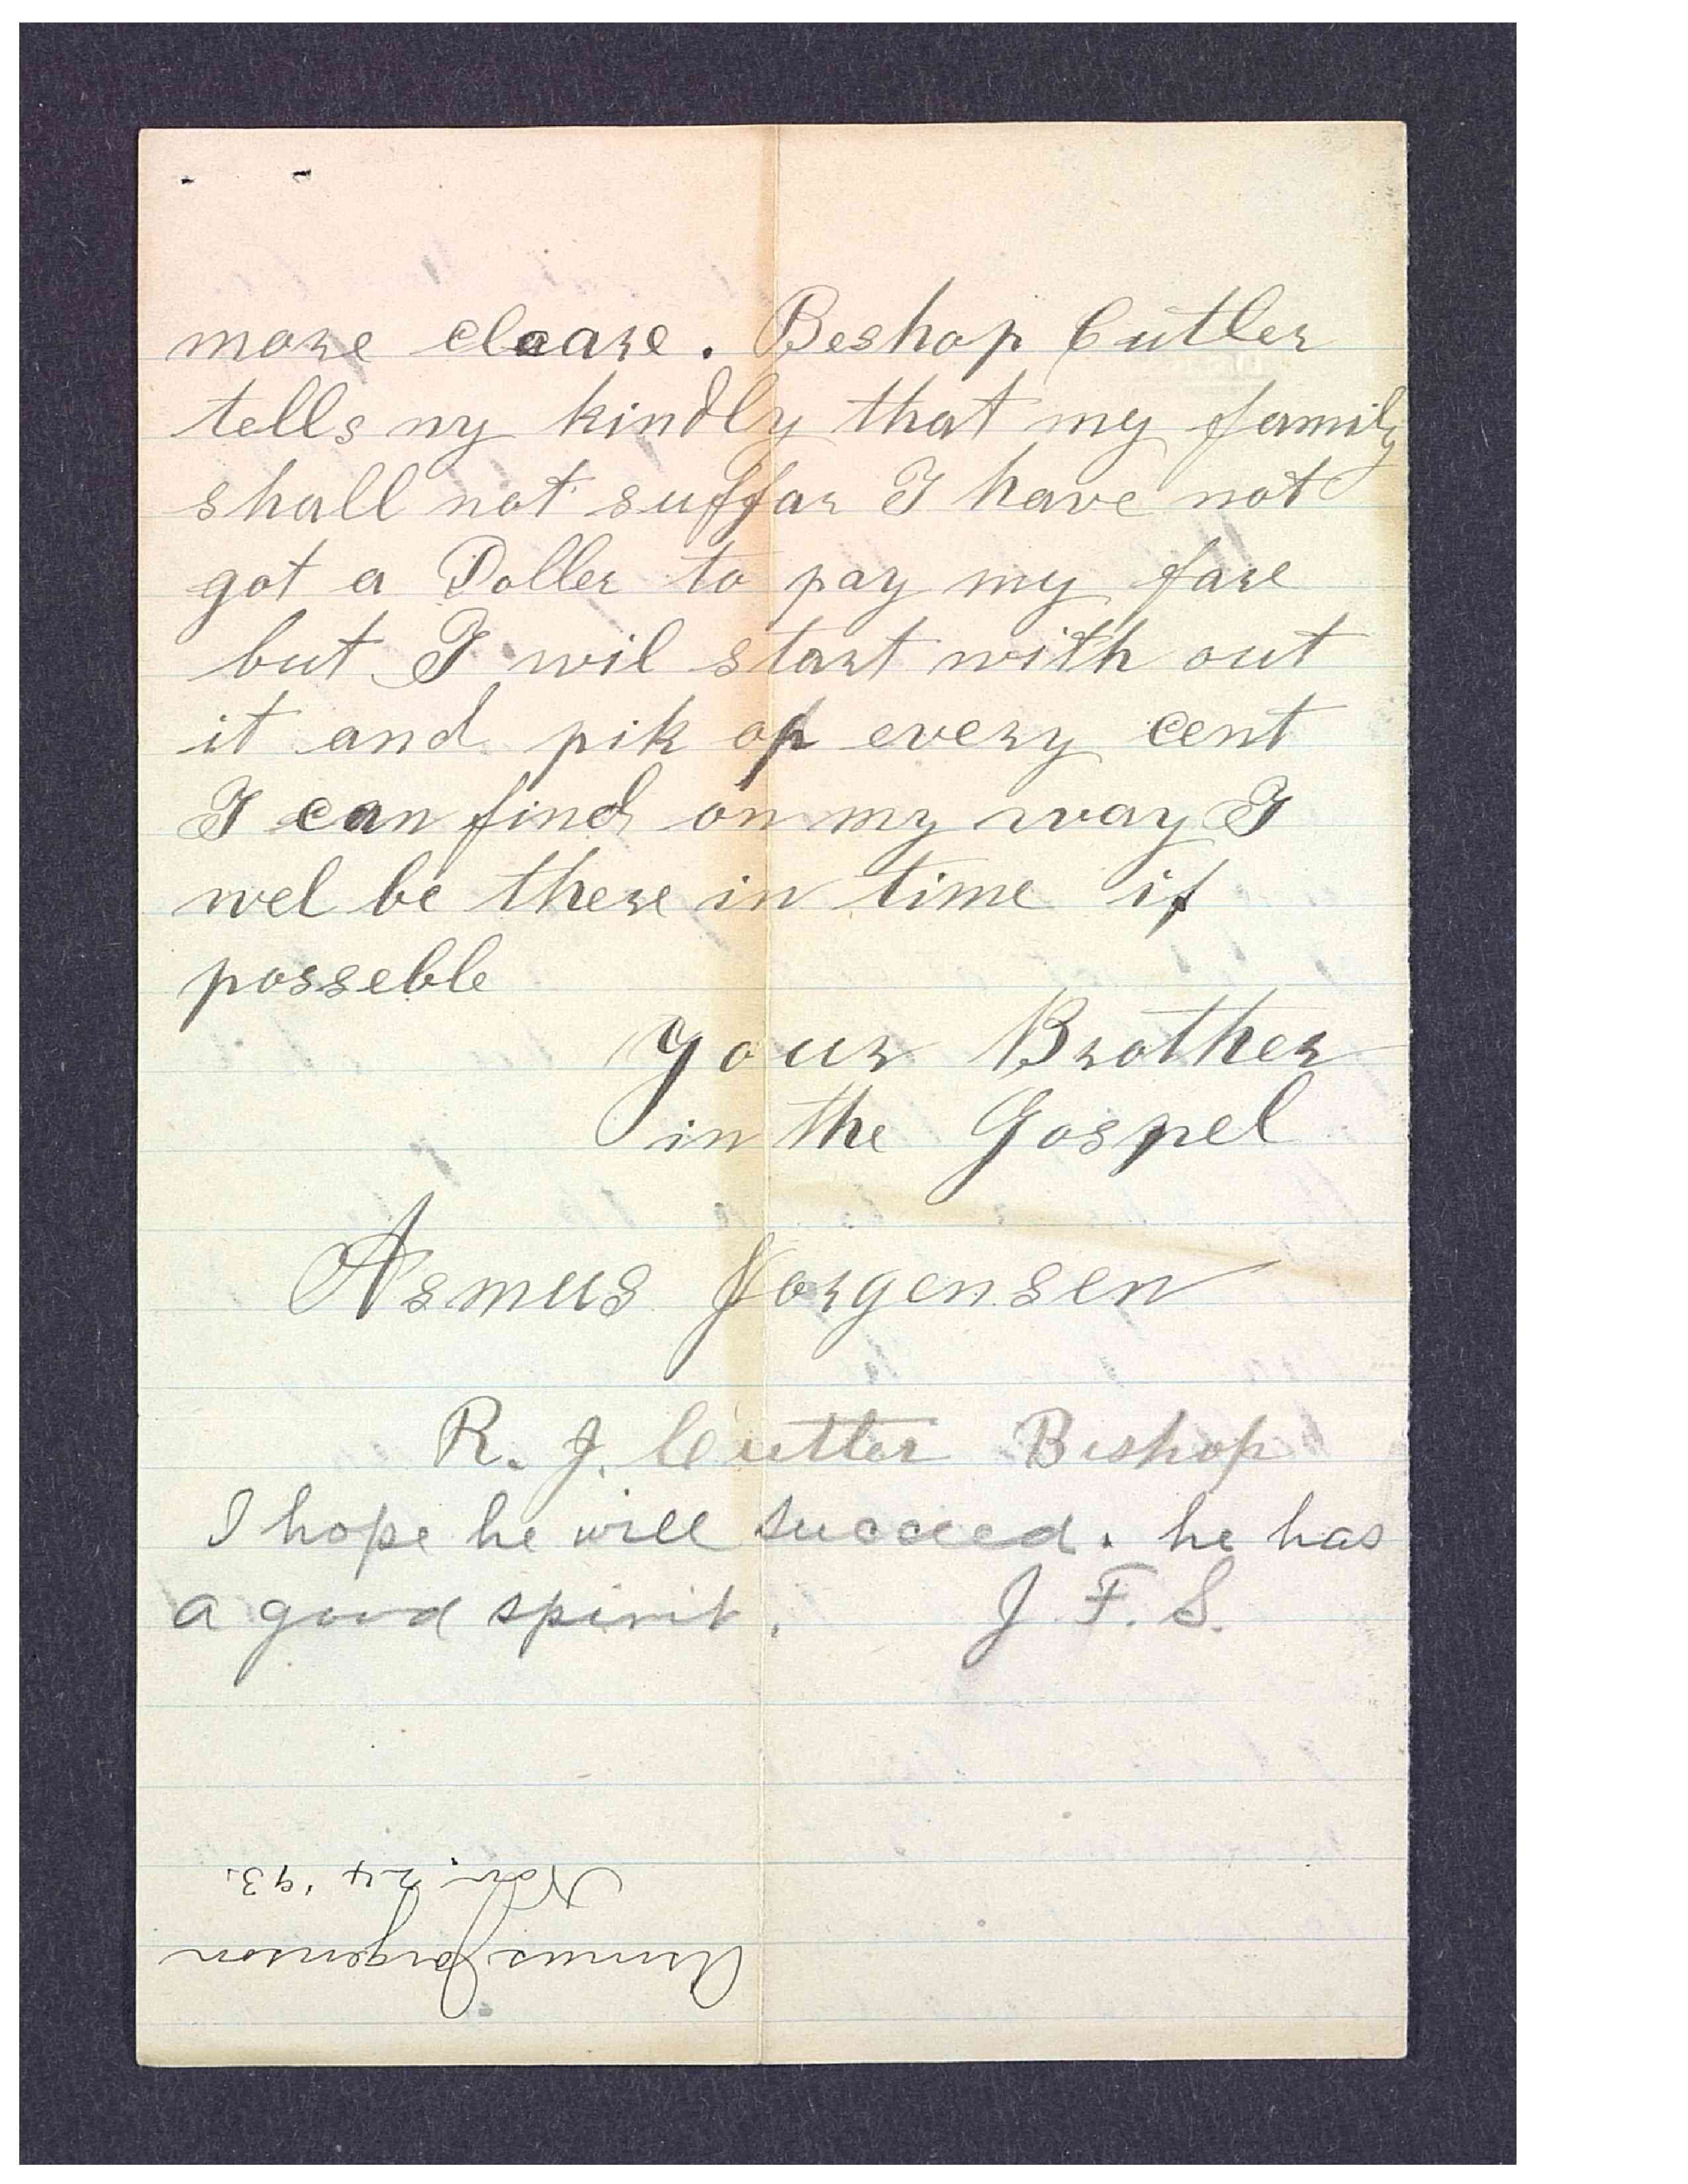 more cleare. Beshop Cutler
tells my kindly that my family
shall not suffar I have not
got a Doller to pay my fare
but I wil start with out
it and pik op every cent
I can find on my way I
wel be there in time if
posseble
Your Brother
in the Gospel
Asmus Jorgensen
R. J. Cutler Bishop
I hope he will succeed. he has
a good spirit. J. F. S.
Asmus Jorgenson
Nov. 24 '93.